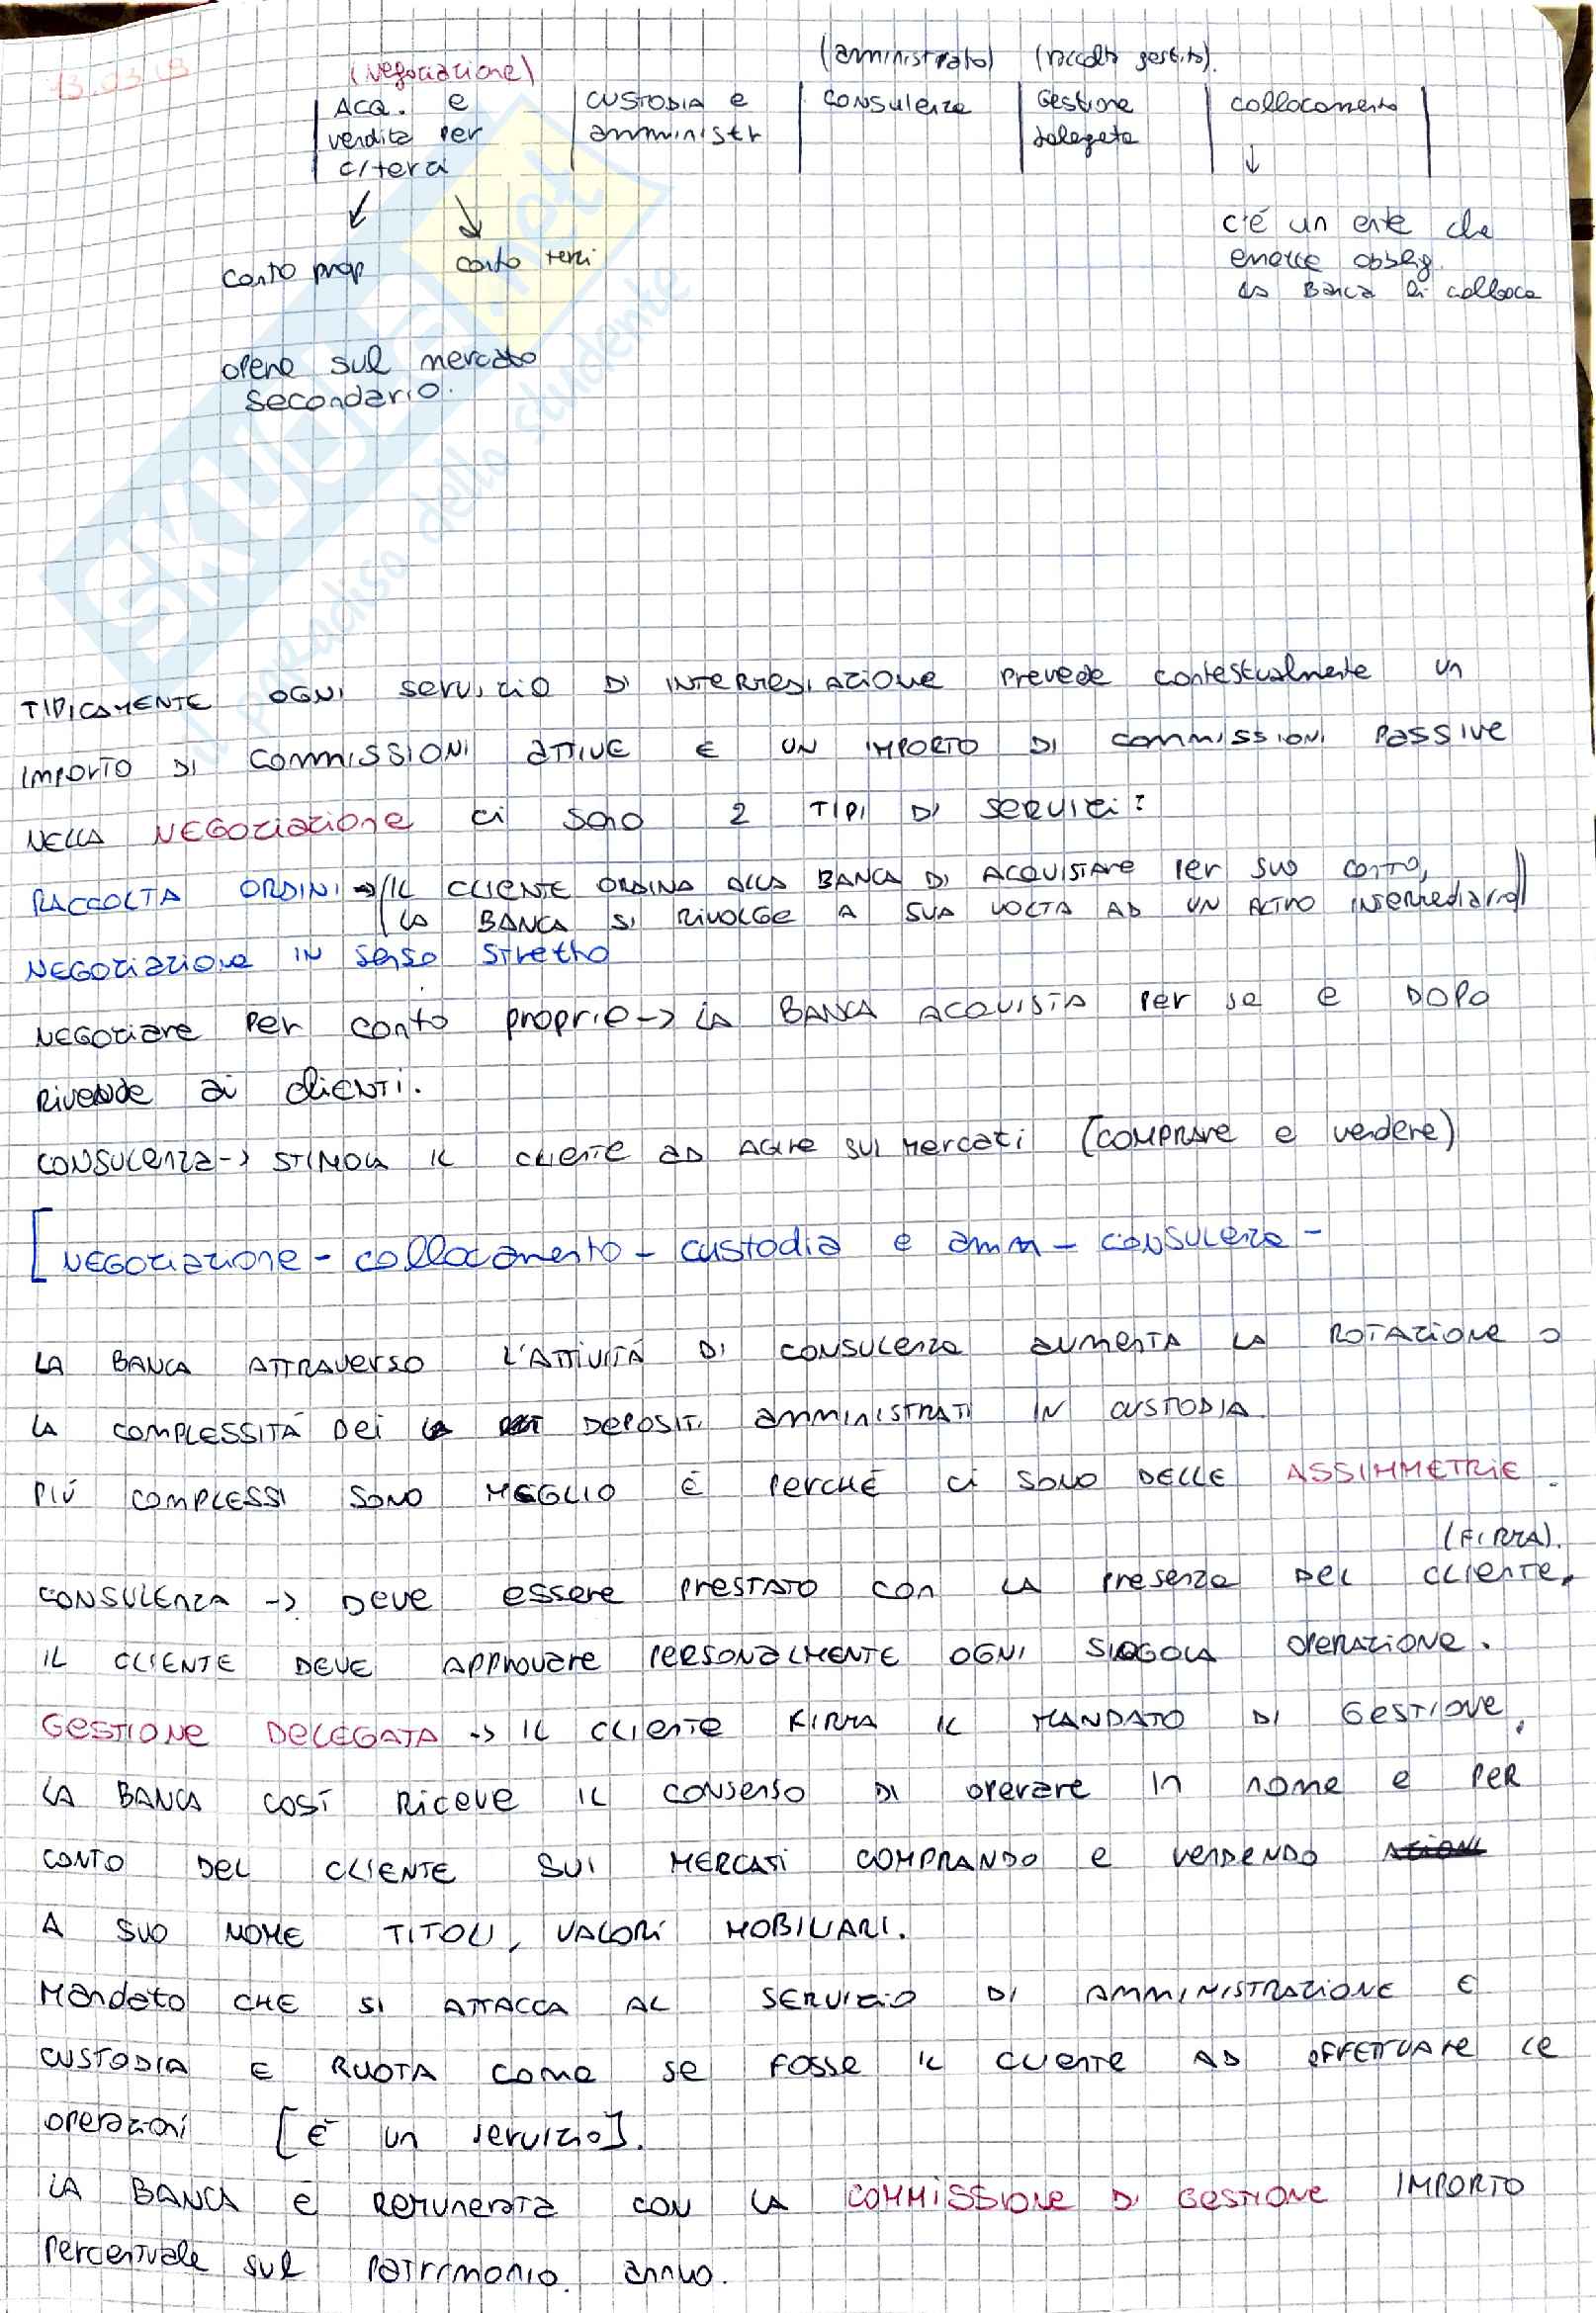 13.03.18
(negoziazione)
(amministrato) (raccolta gestito).
ACQ. e vendita per c/terzi
CUSTODIA e amministr
CONSULENZA
Gestione delegata
collocamento
↓
conto prop
conto terzi
c'é un ente che
emette obblig.
LA BANCA li colloca
opera sul mercato
secondario.
SKUOLA.net
il paradiso dello studente
TIPICAMENTE OGNI servizio DI INTERMEDIAZIONE prevede contestualmente un
IMPORTO DI COMMISSIONI ATTIVE E UN IMPORTO DI commissioni PASSIVE
NELLA NEGOZIAZIONE ci sono 2 TIPI DI SERVIZI:
RACCOLTA ORDINI → IL CLIENTE ORDINA ALLA BANCA DI ACQUISTARE Per suo conto,
LA BANCA SI RIVOLGE A SUA VOLTA AD UN ALTRO INTERMEDIARIO
NEGOZIAZIONE IN senso stretto
NEGOZIARE Per conto proprio -> LA BANCA ACQUISTA Per se e DOPO
RIVENDE ai CLIENTI.
CONSULENZA -> STIMOLA IL CLIENTE AD AGIRE SUI Mercati (COMPRARE e vendere)
[NEGOZIAZIONE - collocamento - custodia e amm - CONSULENZA -
LA BANCA ATTRAVERSO L'ATTIVITÁ DI CONSULENZA AUMENTA LA ROTAZIONE o
LA COMPLESSITÁ DEI DEPOSITI AMMINISTRATI IN CUSTODIA
PIÚ COMPLESSI SONO MEGLIO É PERCHÉ CI SONO DELLE ASSIMMETRIE.
(FIRMA).
CONSULENZA -> DEVE essere PRESTATO con LA presenza DEL CLIENTE.
IL CLIENTE DEVE APPROVARE PERSONALMENTE OGNI SINGOLA OPERAZIONE.
GESTIONE DELEGATA -> IL CLIENTE FIRMA IL MANDATO DI GESTIONE,
LA BANCA COSÍ RICEVE IL CONSENSO DI operare in nome e PER
CONTO DEL CLIENTE SUI MERCATI COMPRANDO e VENDENDO
A SUO NOME TITOLI, VALORI MOBILIARI.
Mandato CHE SI ATTACCA AL SERVIZIO DI AMMINISTRAZIONE E
CUSTODIA E RUOTA COME SE FOSSE IL CLIENTE AD EFFETTUARE LE
operazioni [É un servizio].
LA BANCA É REMUNERATA CON LA COMMISSIONE DI GESTIONE IMPORTO
PERCENTUALE SUL PATRIMONIO. ANNUO.